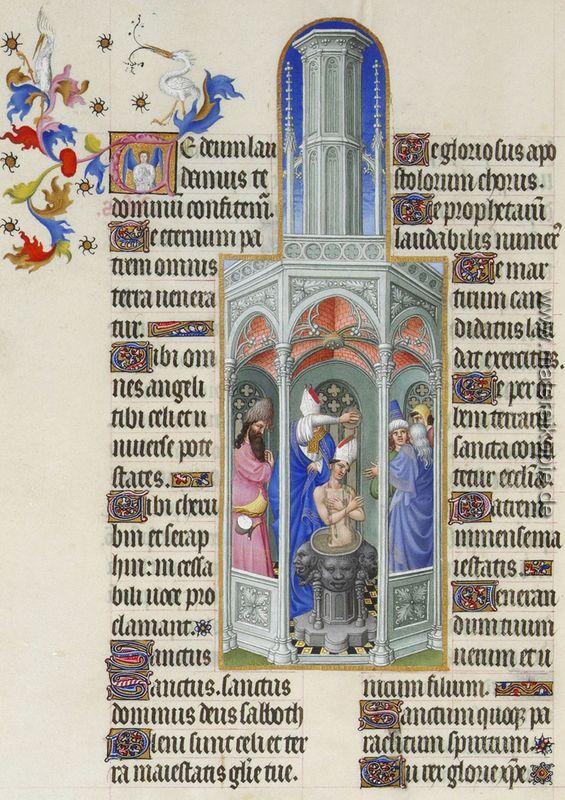 Te deum lau
damus te
dominū confitem̄.
Te eternum pa
trem omnis
terra venera
tur.
Tibi om
nes angeli
tibi celi et u
niverse pote
states.
Tibi cheru
bin et serap
hin: incessa
bili voce pro
clamant.
Sanctus
Sanctus. sanctus
dominus deus sabaoth
Pleni sunt celi et ter
ra maiestatis gl̄ie tue.
Te gloriosus apo
stolorum chorus.
Te prophetarū
laudabilis numerꝰ
Te mar
tirum can
didatus lau
dat exercitus.
Te per or
bem terrarū
sancta confi
tetur ecclīa
Patrem
immense ma
iestatis.
Veneran
dum tuum
verum et u
nicum filium.
Sanctum quoqꝫ pa
raclitum spiritum.
Tu rex glorie xp̄e.